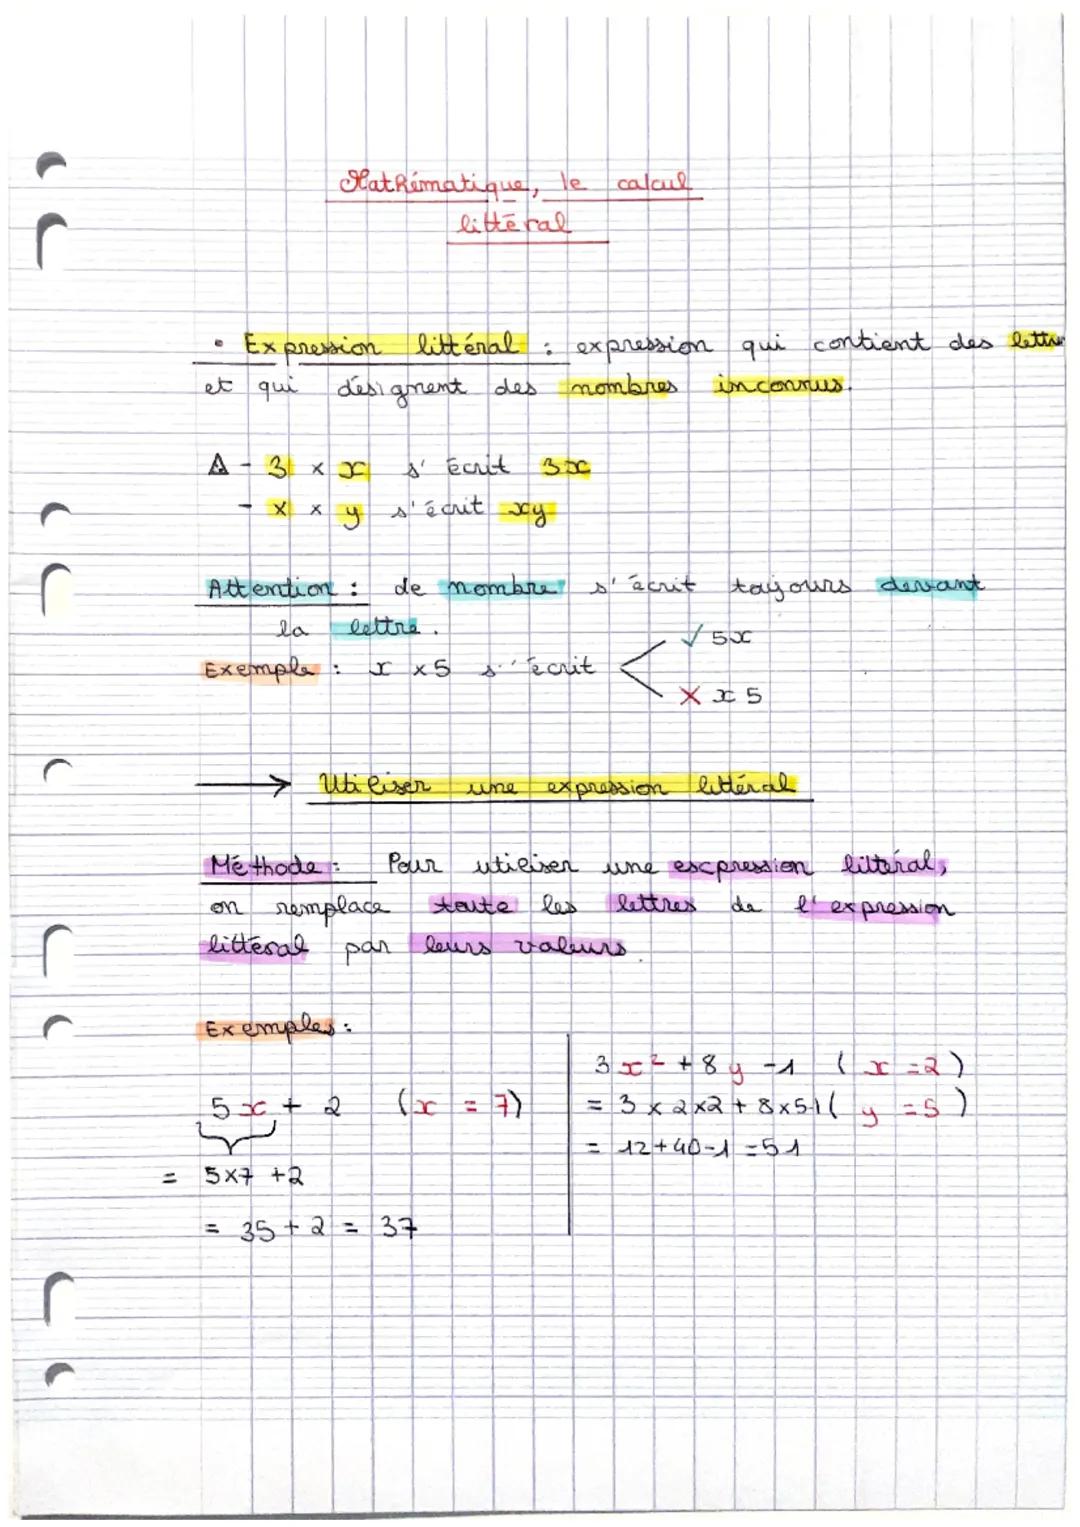 Mathématique, le calcul
littéral
• Expression littéral : expression qui contient des lettre
et qui désignent des nombres inconnus.
⚠ - 3 × x s'écrit 3x
- x × y s'écrit xy
Attention : de nombre s'écrit toujours devant
la lettre.
✓ 5x
Exemple : x × 5 s'écrit
✗ x 5
→ Utiliser une expression littéral
Méthode : Pour utiliser une expression littéral,
on remplace toute les lettres de l'expression
littéral par leurs valeurs.
Exemples :
5x + 2 (x = 7)
= 5×7 +2
= 35 + 2 = 37
3x² + 8y -1 (x = 2)
= 3 × 2×2 + 8×5-1 ( y = 5 )
= 12+40-1 = 51